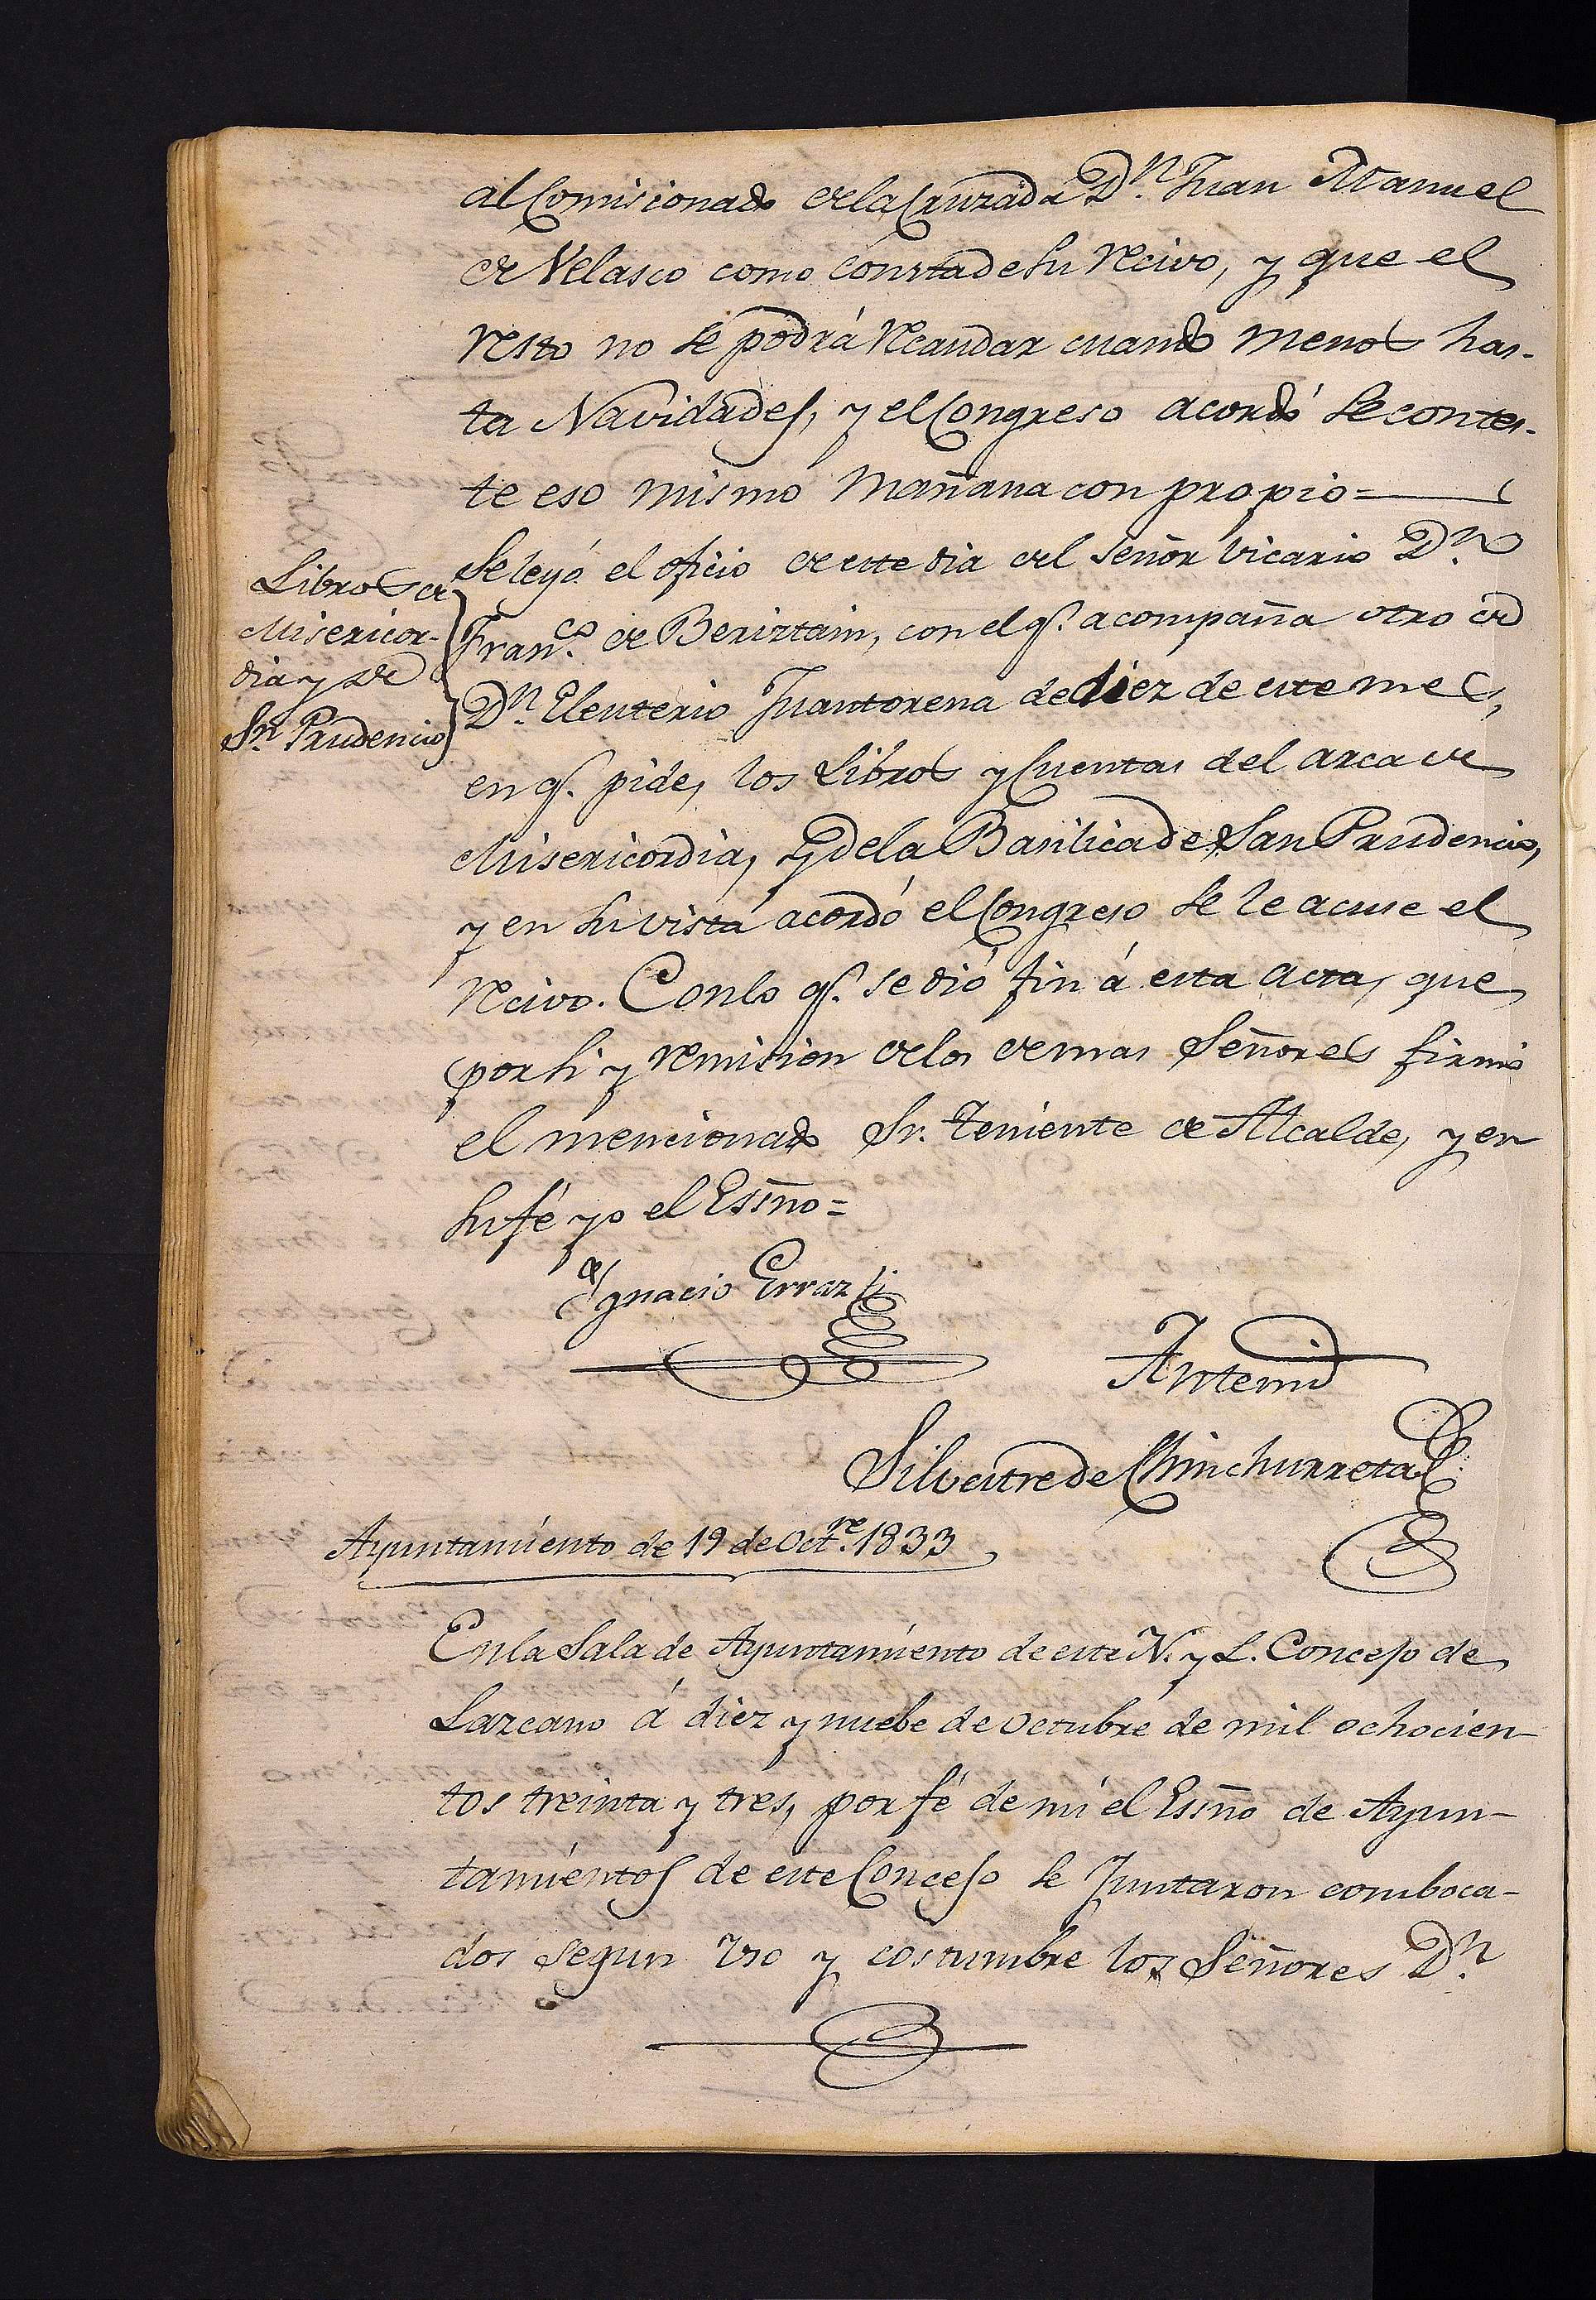 al Comisionado de la Cruzada D.n Juan Manuel
de Velasco como consta de su recivo, y que el
resto no se podrá recaudar cuando menos has-
ta Navidades, y el Congreso acordó se contes-
te eso mismo mañana con propio =
Libros de
Misericor-
dia y de
Sn. Prudencio
Se leyó el oficio de este dia del Señor Vicario D.n
Fran.co de Beriztain, con el q.e acompaña otro de
D.n Eleuterio Juantorena de diez de este mes,
en q.e pide, los Libros y Cuentas del arca de
Misericordia, y de la Basilica de San Prudencio,
y en su vista acordó el Congreso se le acuse el
recivo. Con lo q.e se dió fin á esta acta, que
por si y remision de los demas Señores firmó
el mencionado Sr. Teniente de Alcalde, y en
su fé yo el Essño =
Ignacio Errazti
Antemi
Silvestre de Chinchurreta
Ayuntamiento de 19 de Oct.re 1833
En la Sala de Ayuntamiento de este N. y L. Concejo de
Lazcano á diez y nuebe de Octubre de mil ochocien-
tos treinta y tres, por fé de mi el Essño de Ayun-
tamientos de este Concejo se Juntaron comboca-
dos segun Uso y costumbre los Señores D.n